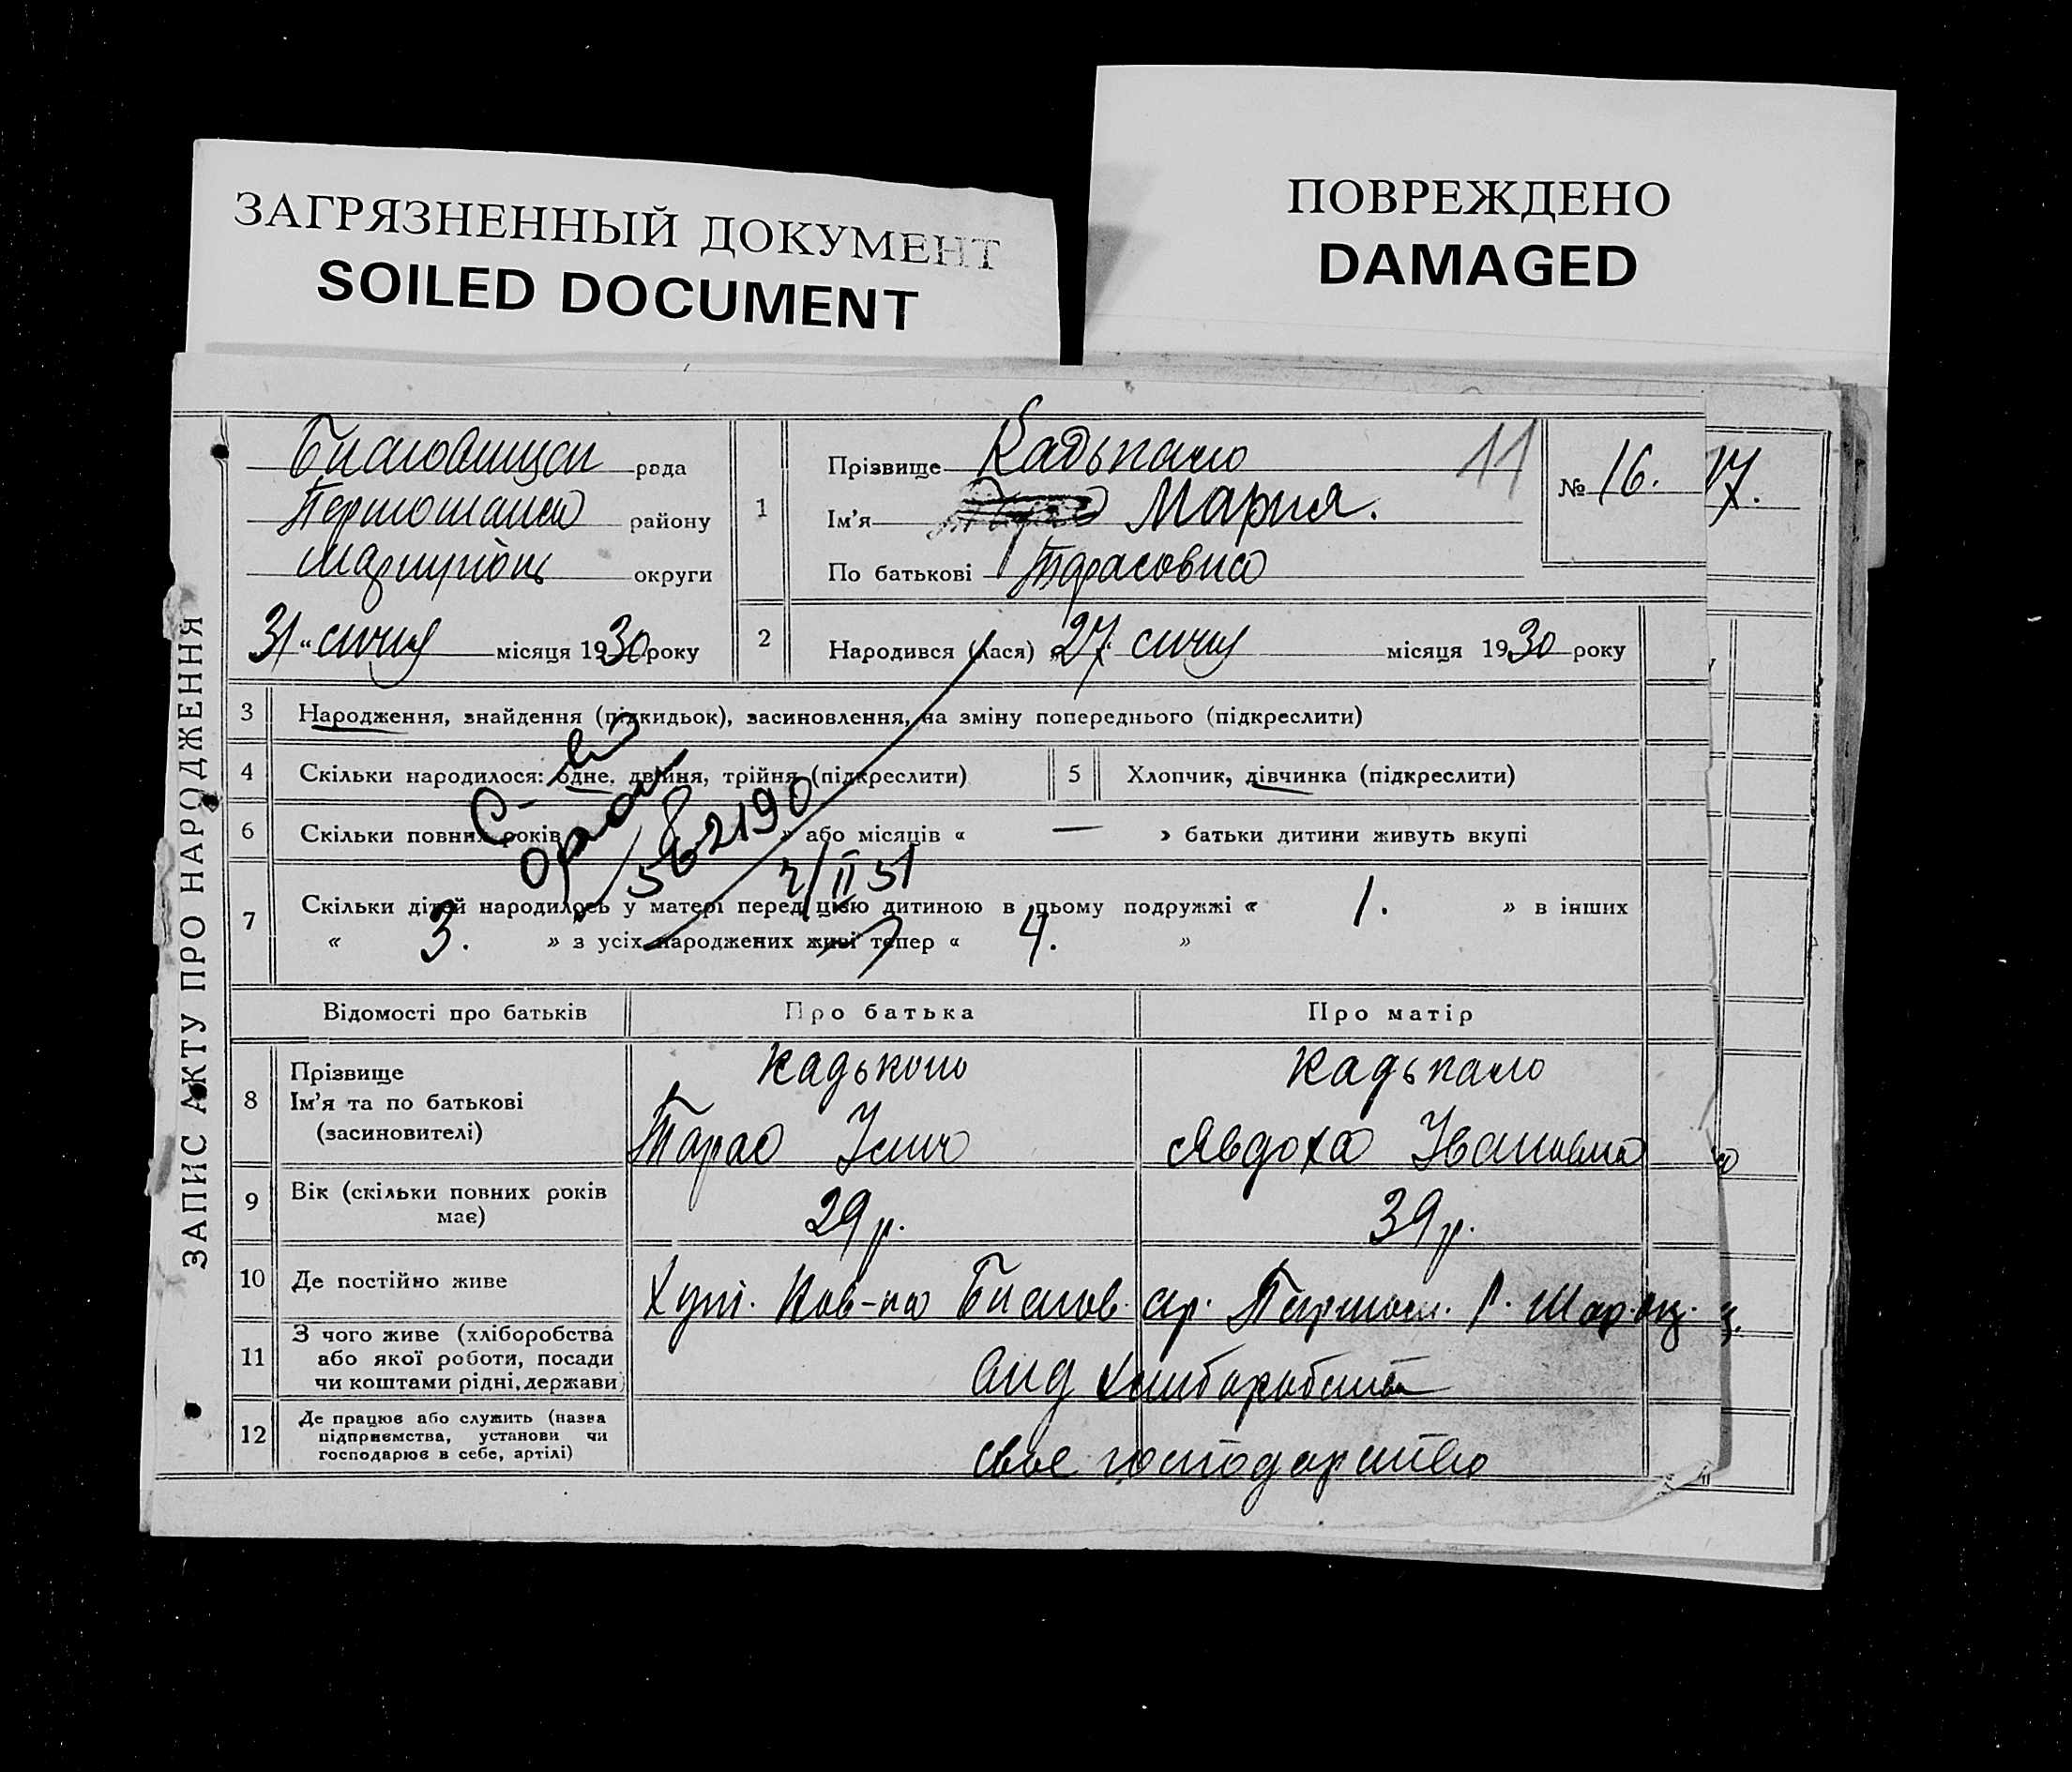 ЗАГРЯЗНЕННЫЙ ДОКУМЕНТ
SOILED DOCUMENT
ПОВРЕЖДЕНО
DAMAGED
ЗАПИС АКТУ ПРО НАРОДЖЕННЯ
рада
району
округи
31 " січня місяця 1930 року
1
Прізвище Кадькало 11
Ім'я Мария.
По батькові Тарасовна
№ 16.
17.
2 Народився (лася) 27 січня місяця 1930 року
3 Народження, знайдення (підкидьок), засиновлення, на зміну попереднього (підкреслити)
4 Скільки народилося: одне, двійня, трійня (підкреслити)
5 Хлопчик, дівчинка (підкреслити)
6 Скільки повних років » або місяців « — » батьки дитини живуть вкупі
562190
2/II 51
7 Скільки дітей народилось у матері перед цією дитиною в цьому подружжі « 1. » в інших
« 3. » з усіх народжених живі тепер « 4. »
Відомості про батьків
Про батька
Про матір
8 Прізвище
Ім'я та по батькові
(засиновителі)
Тарас
Кадькало
Явдоха Івановна
9 Вік (скільки повних років
має)
29 р.
39 р.
10 Де постійно живе
Хут.
11 З чого живе (хліборобства
або якої роботи, посади
чи коштами рідні, держави)
від хліборобства
12 Де працює або служить (назва
підприємства, установи чи
господарює в себе, артілі)
своє господарство